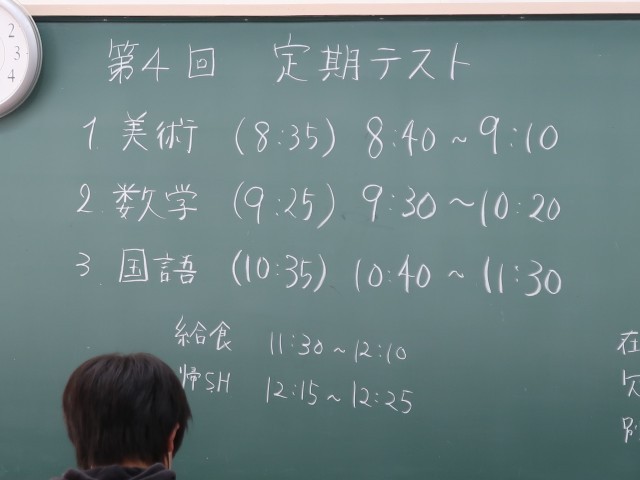 第4回 定期テスト
1. 美術 (8:35) 8:40~9:10
2. 数学 (9:25) 9:30~10:20
3. 国語 (10:35) 10:40~11:30
給食 11:30~12:10
帰SH 12:15~12:25
在
欠
別
2
3
4